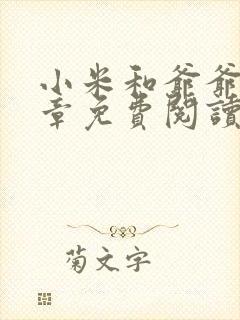 小米和爺爺
章免費閱讀
菊文字